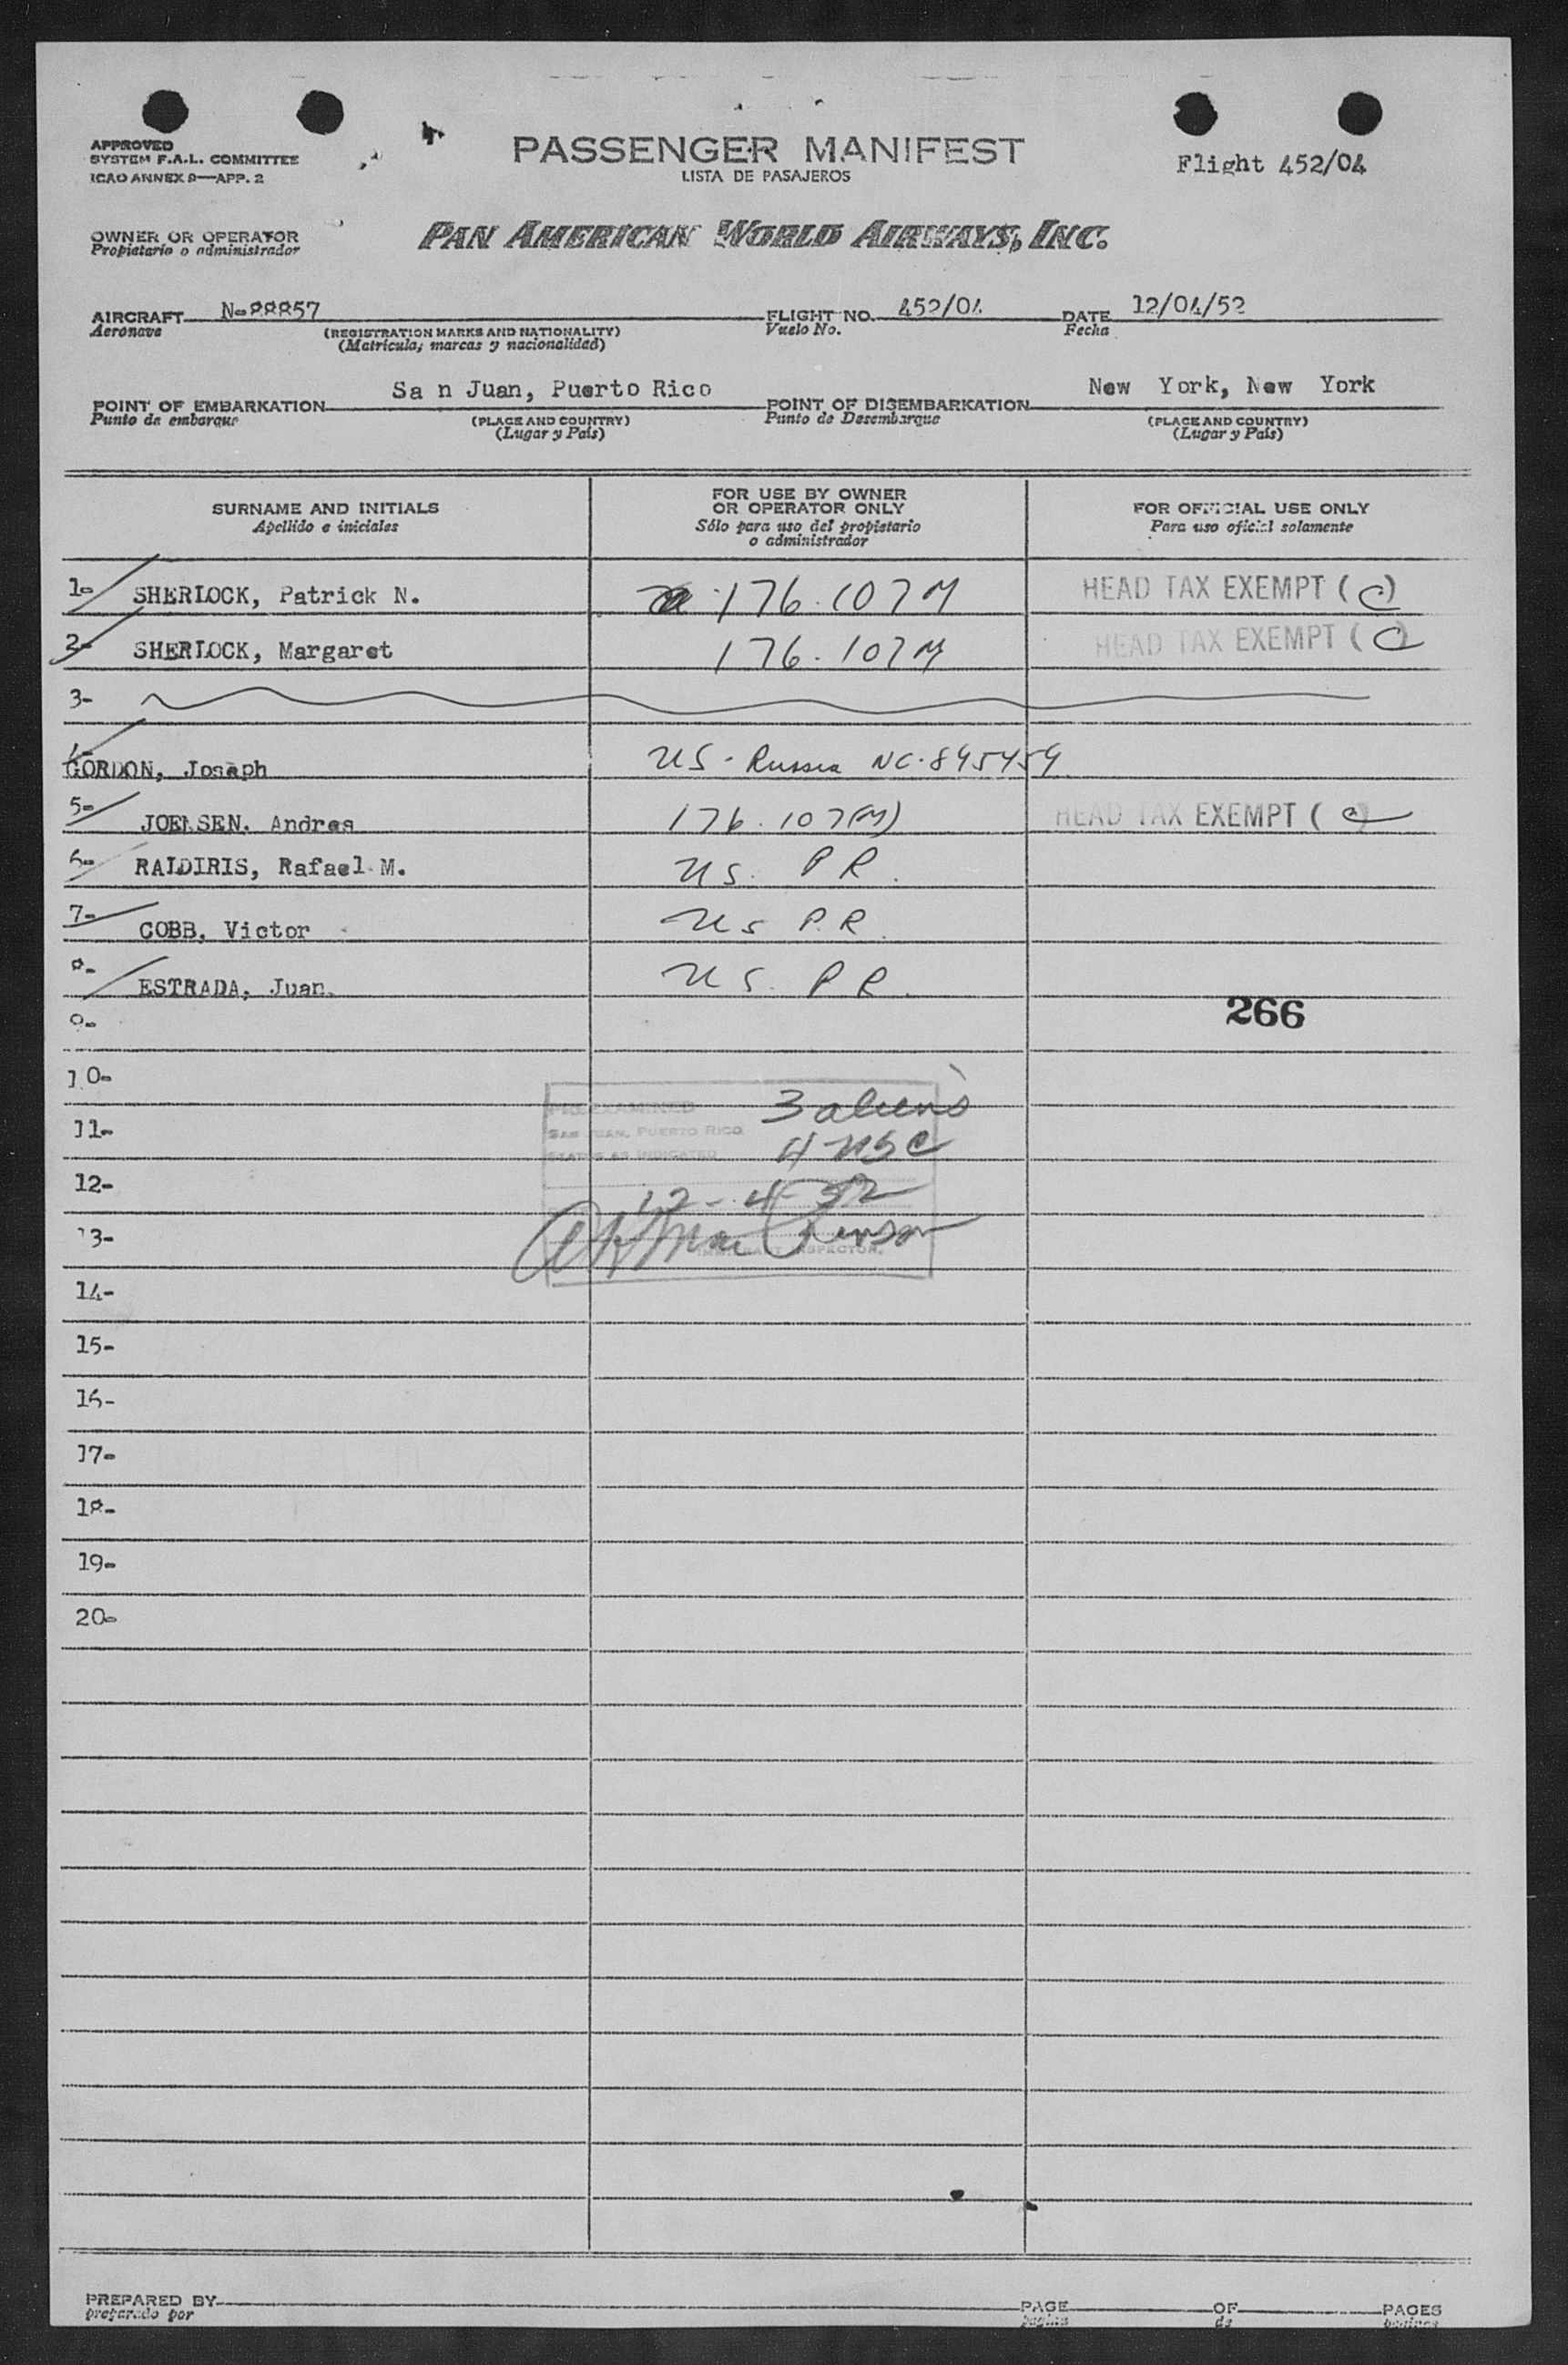 APPROVED
SYSTEM F.A.L. COMMITTEE
ICAO ANNEX 9—APP. 2
PASSENGER MANIFEST
LISTA DE PASAJEROS
Flight 452/04
OWNER OR OPERATOR
Propietario o administrador
PAN AMERICAN WORLD AIRWAYS, INC.
AIRCRAFT N-88857
Aeronave
(REGISTRATION MARKS AND NATIONALITY)
(Matrícula, marcas y nacionalidad)
FLIGHT NO. 452/04
Vuelo No.
DATE 12/04/52
Fecha
POINT OF EMBARKATION Sa n Juan, Puerto Rico
Punto de embarque
(PLACE AND COUNTRY)
(Lugar y País)
POINT OF DISEMBARKATION New York, New York
Punto de Desembarque
(PLACE AND COUNTRY)
(Lugar y País)
SURNAME AND INITIALS
Apellido e iniciales
FOR USE BY OWNER
OR OPERATOR ONLY
Sólo para uso del propietario
o administrador
FOR OFFICIAL USE ONLY
Para uso oficial solamente
1- SHERLOCK, Patrick N. 176.107M HEAD TAX EXEMPT (C)
2- SHERLOCK, Margaret 176.107M HEAD TAX EXEMPT (C)
3-
GORDON, Joseph US - Russia NC-895459
5- JOENSEN, Andres 176.107(M) HEAD TAX EXEMPT (C)
6- RALDIRIS, Rafael M. US. PR.
7- COBB, Victor US P.R.
8- ESTRADA, Juan. US. PR.
266
9-
10-
11-
12-
13-
14-
15-
16-
17-
18-
19-
20-
PRE-EXAMINED
SAN JUAN, PUERTO RICO
STATUS AS INDICATED
3 aliens
4 USC
12-4-52
IMMIGRANT INSPECTOR.
PREPARED BY
preparado por
PAGE OF PAGES
pagina de paginas